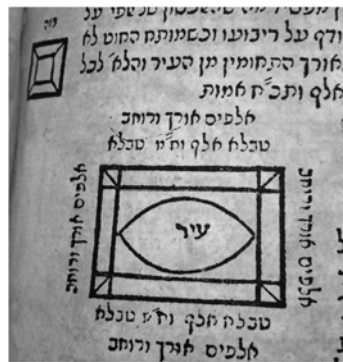 על ריבועו וכשמותח החוט לא
אורך התחומין מן העיר והלא לכל
אלף ותכ"ח אמות
אלפים אורך ורוחב
טבלא אלף וח"מ טבלא
אלפים אורך ורוחב
עיר
אלפים אורך ורוחב
טבלה אלף וח"מ טבלא
אלפים אורך ורוחב